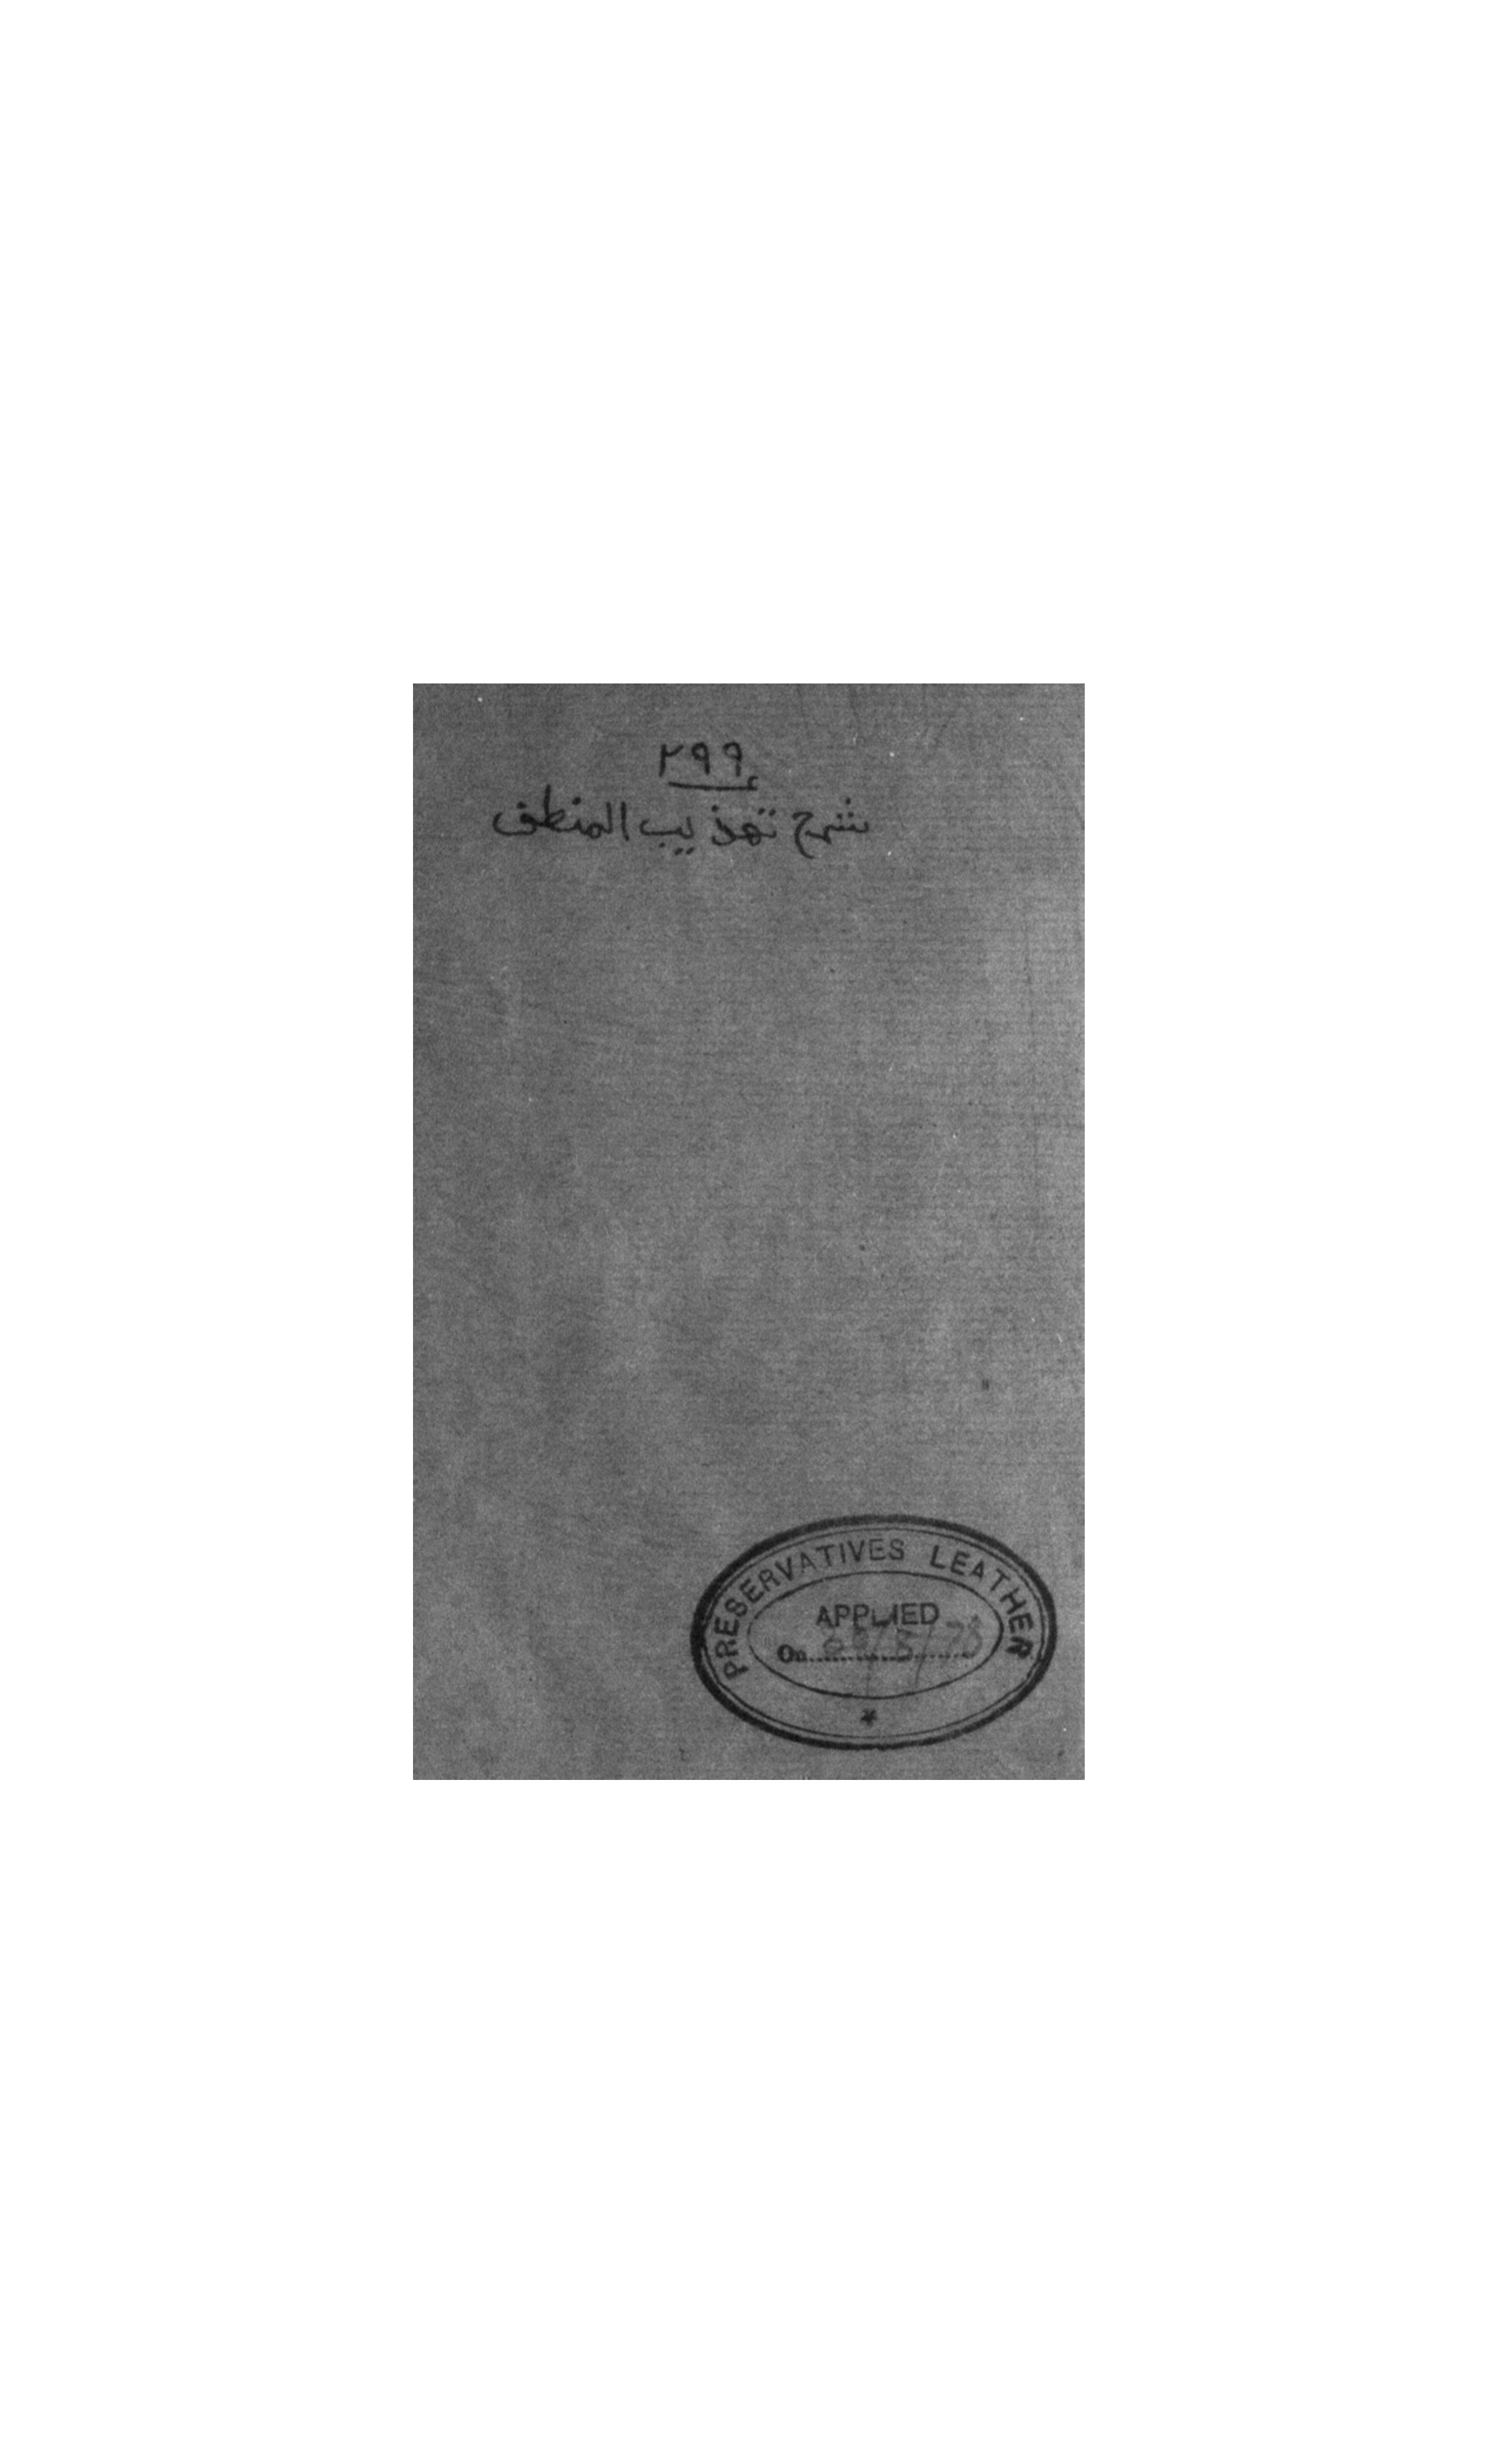 ٢٩٩
شرح تهذيب المنطق
PRESERVATIVES LEATHER
APPLIED
On